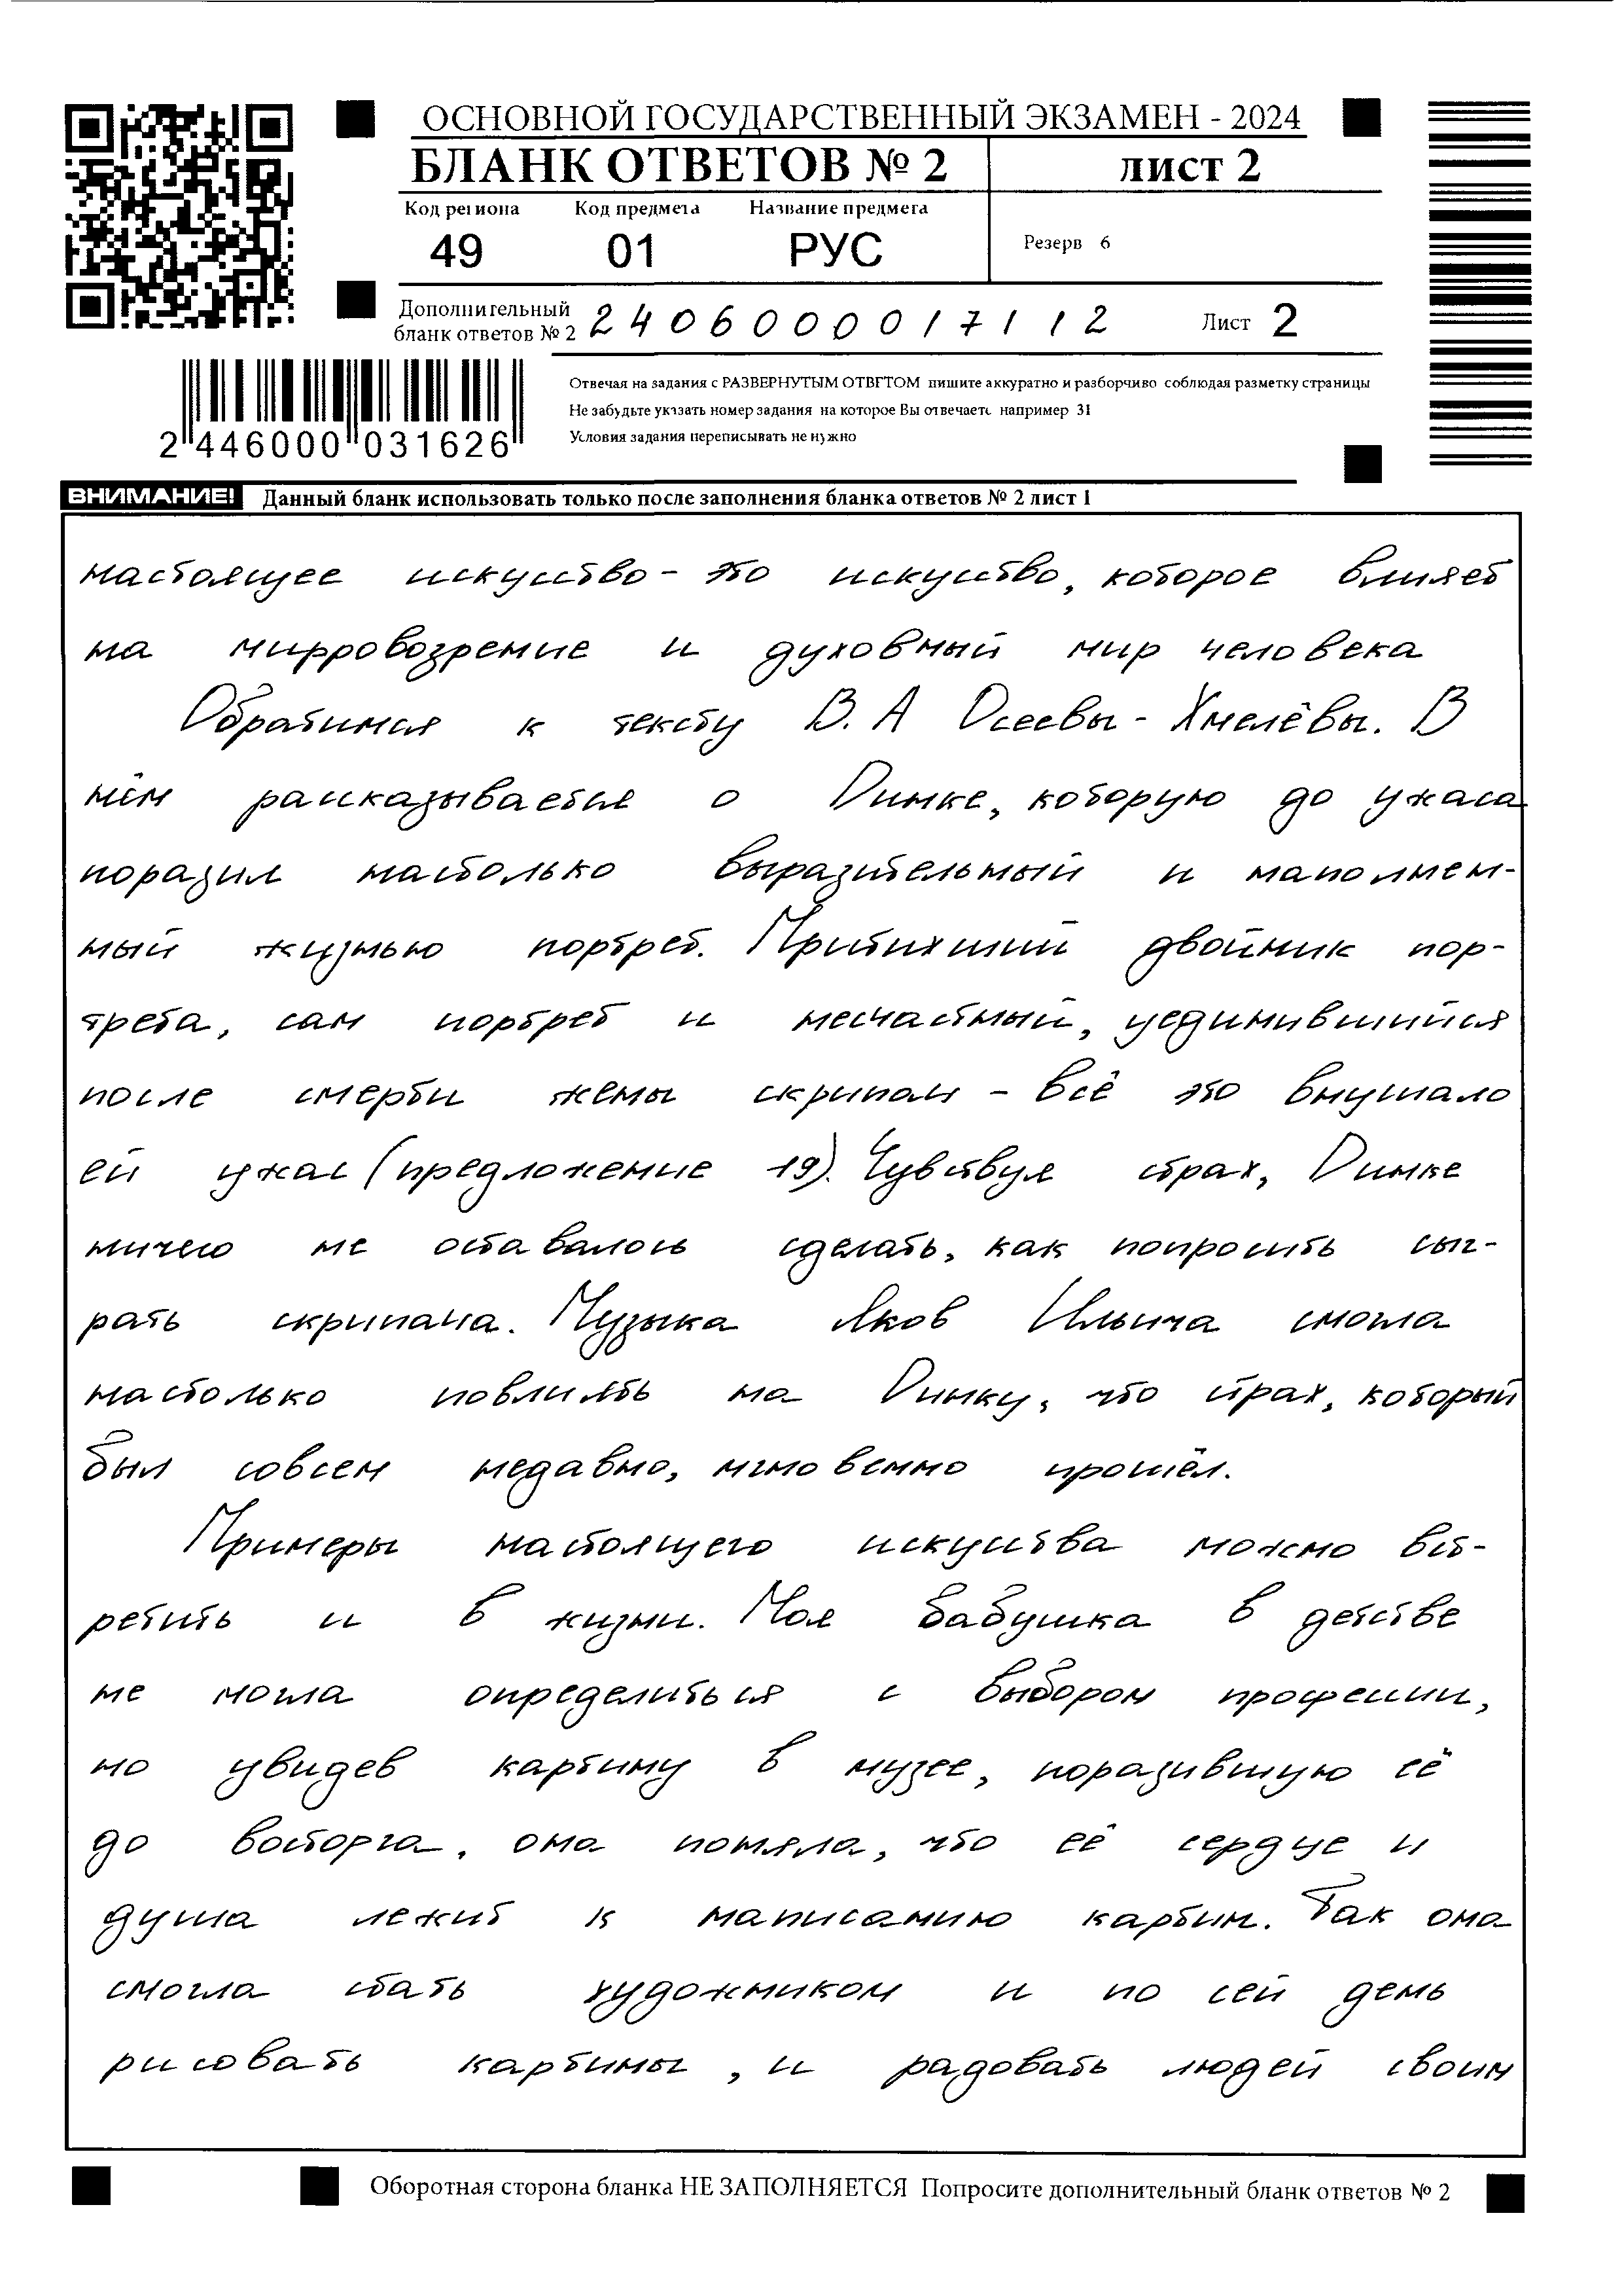 ОСНОВНОЙ ГОСУДАРСТВЕННЫЙ ЭКЗАМЕН - 2024
БЛАНК ОТВЕТОВ № 2
ЛИСТ 2
Код региона Код предмета Название предмета
49 01 РУС
Резерв 6
Дополнительный
бланк ответов № 2 2406000017112
Лист 2
2 446000 031626
Отвечая на задания с РАЗВЕРНУТЫМ ОТВЕТОМ пишите аккуратно и разборчиво соблюдая разметку страницы
Не забудьте указать номер задания на которое Вы отвечаете например 31
Условия задания переписывать не нужно
ВНИМАНИЕ! Данный бланк использовать только после заполнения бланка ответов № 2 лист 1
настоящее искусство - это искусство, которое влияет
на мирровозрение и духовный мир человека
Обратимся к тексту В. А Осеевы - Хмелёвы. В
нём рассказывается о Динке, которую до ужаса
поразил настолько выразительный и наполнен-
ный жизнью портрет. Притихший двойник пор-
трета, сам портрет и несчастный, уединившийся
после смерти жены скрипач - всё это внушало
ей ужас (предложение 19). Чувствуя страх, Динке
ничего не оставалось сделать, как попросить сыг-
рать скрипача. Музыка Яков Ильича смогла
настолько повлиять на Динку, что страх, который
был совсем недавно, мгновенно прошёл.
Примеры настоящего искусства можно вст-
ретить и в жизни. Моя бабушка в детстве
не могла определиться с выбором профессии,
но увидев картину в музее, поразившую её
до восторга, она поняла, что её сердце и
душа лежит к написанию картин. Так она
смогла стать художником и по сей день
рисовать картины, и радовать людей своим
Оборотная сторона бланка НЕ ЗАПОЛНЯЕТСЯ Попросите дополнительный бланк ответов № 2